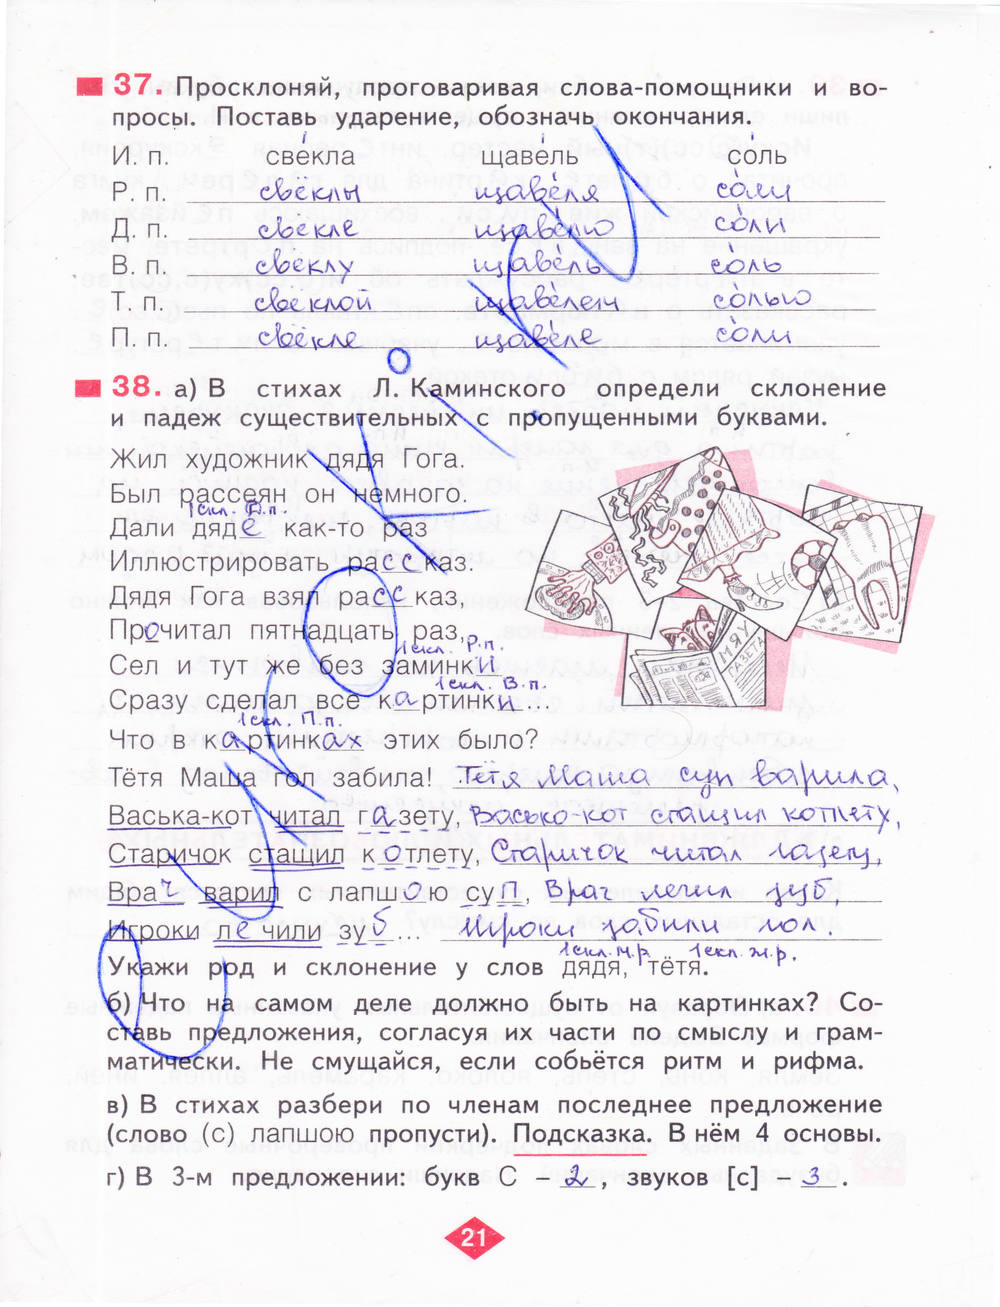 37. Просклоняй, проговаривая слова-помощники и во-
просы. Поставь ударение, обозначь окончания.
И. п. свёкла щаве́ль со́ль
Р. п. свёклы щаве́ля со́ли
Д. п. свёкле щаве́лю со́ли
В. п. свёклу щаве́ль соль
Т. п. свёклой щаве́лем со́лью
П. п. свёкле щаве́ле со́ли
38. а) В стихах Л. Каминского определи склонение
и падеж существительных с пропущенными буквами.
Жил художник дядя Гога.
Был рассеян он немного.
1скл. Д.п.
Дали дяде как-то раз
Иллюстрировать рассказ.
Дядя Гога взял рассказ,
Прочитал пятнадцать раз,
1скл. Р.п.
Сел и тут же без заминки
1скл. В.п.
Сразу сделал все картинки...
1скл. П.п.
Что в картинках этих было?
Тётя Маша гол забила! Тётя Маша суп варила,
Васька-кот читал газету, Васько-кот стащил котлету,
Старичок стащил котлету, Старичок читал газету,
Врач варил с лапшою суп, Врач лечил зуб,
Игроки лечили зуб... Игроки забили гол.
1скл. м.р. 1скл. ж.р.
Укажи род и склонение у слов дядя, тётя.
б) Что на самом деле должно быть на картинках? Со-
ставь предложения, согласуя их части по смыслу и грам-
матически. Не смущайся, если собьётся ритм и рифма.
в) В стихах разбери по членам последнее предложение
(слово (с) лапшою пропусти). Подсказка. В нём 4 основы.
г) В 3-м предложении: букв С – 2, звуков [с] – 3.
МЯУ
ГАЗЕТА
21